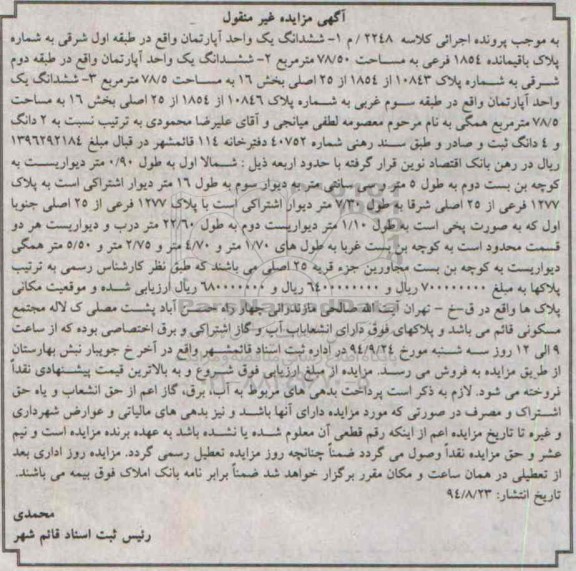 آگهی مزایده غیر منقول
به موجب پرونده اجرائی کلاسه ۲۲۴۸ / م ۱- ششدانگ یک واحد آپارتمان واقع در طبقه اول شرقی به شماره
پلاک باقیمانده ۱۸۵۴ فرعی به مساحت ۷۸/۵۰ مترمربع ۲- ششدانگ یک واحد آپارتمان واقع در طبقه دوم
شرقی به شماره پلاک ۱۰۸۴۳ از ۱۸۵۴ از ۲۵ اصلی بخش ۱۶ به مساحت ۷۸/۵ مترمربع ۳- ششدانگ یک
واحد آپارتمان واقع در طبقه سوم غربی به شماره پلاک ۱۰۸۴۶ از ۱۸۵۴ از ۲۵ اصلی بخش ۱۶ به مساحت
۷۸/۵ مترمربع همگی به نام مرحوم معصومه لطفی میانجی و آقای علیرضا محمودی به ترتیب نسبت به ۲ دانگ
و ۴ دانگ ثبت و صادر و طبق سند رهنی شماره ۴۰۷۵۲ دفترخانه ۱۱۴ قائمشهر در قبال مبلغ ۱۳۹۶۲۹۲۱۸۴
ریال در رهن بانک اقتصاد نوین قرار گرفته با حدود اربعه ذیل : شمالا اول به طول ۰/۹۰ متر دیواریست به
کوچه بن بست دوم به طول ۵ متر و سی سانتی متر به دیوار سوم به طول ۱۶ متر دیوار اشتراکی است به پلاک
۱۲۷۷ فرعی از ۲۵ اصلی شرقا به طول ۷/۳۰ متر دیوار اشتراکی است با پلاک ۱۲۷۷ فرعی از ۲۵ اصلی جنوبا
اول که به صورت پخی است به طول ۱/۱۰ متر دیواریست دوم به طول ۲۲/۶۰ متر درب و دیواریست هر دو
قسمت محدود است به کوچه بن بست غربا به طول های ۱/۷۰ متر و ۴/۷۰ متر و ۲/۷۵ متر و ۵/۵۰ متر همگی
دیواریست به کوچه بن بست مجاورین جزء قریه ۲۵ اصلی می باشند که طبق نظر کارشناس رسمی به ترتیب
پلاکها به مبلغ ۷۰۰۰۰۰۰۰۰ ریال و ۶۴۰۰۰۰۰۰۰۰ ریال و ۶۸۰۰۰۰۰۰۰ ریال ارزیابی شده و موقعیت مکانی
پلاک ها واقع در ق-خ - تهران آیت اله صالحی مازندرانی چهار راه حسن آباد پشت مصلی ک لاله مجتمع
مسکونی قائم می باشد و پلاکهای فوق دارای انشعابات آب و گاز اشتراکی و برق اختصاصی بوده که از ساعت
۹ الی ۱۲ روز سه شنبه مورخ ۹۴/۹/۲۴ در اداره ثبت اسناد قائمشهر واقع در آخر خ جویبار نبش بهارستان
از طریق مزایده به فروش می رسد. مزایده از مبلغ ارزیابی فوق شروع و به بالاترین قیمت پیشنهادی نقداً
فروخته می شود. لازم به ذکر است پرداخت بدهی های مربوط به آب، برق، گاز اعم از حق انشعاب و یاه حق
اشتراک و مصرف در صورتی که مورد مزایده دارای آنها باشد و نیز بدهی های مالیاتی و عوارض شهرداری
و غیره تا تاریخ مزایده اعم از اینکه رقم قطعی آن معلوم شده یا نشده باشد به عهده برنده مزایده است و نیم
عشر و حق مزایده نقداً وصول می گردد ضمناً چنانچه روز مزایده تعطیل رسمی گردد. مزایده روز اداری بعد
از تعطیلی در همان ساعت و مکان مقرر برگزار خواهد شد ضمناً برابر نامه بانک املاک فوق بیمه می باشند.
تاریخ انتشار: ۹۴/۸/۲۳
محمدی
رئیس ثبت اسناد قائم شهر